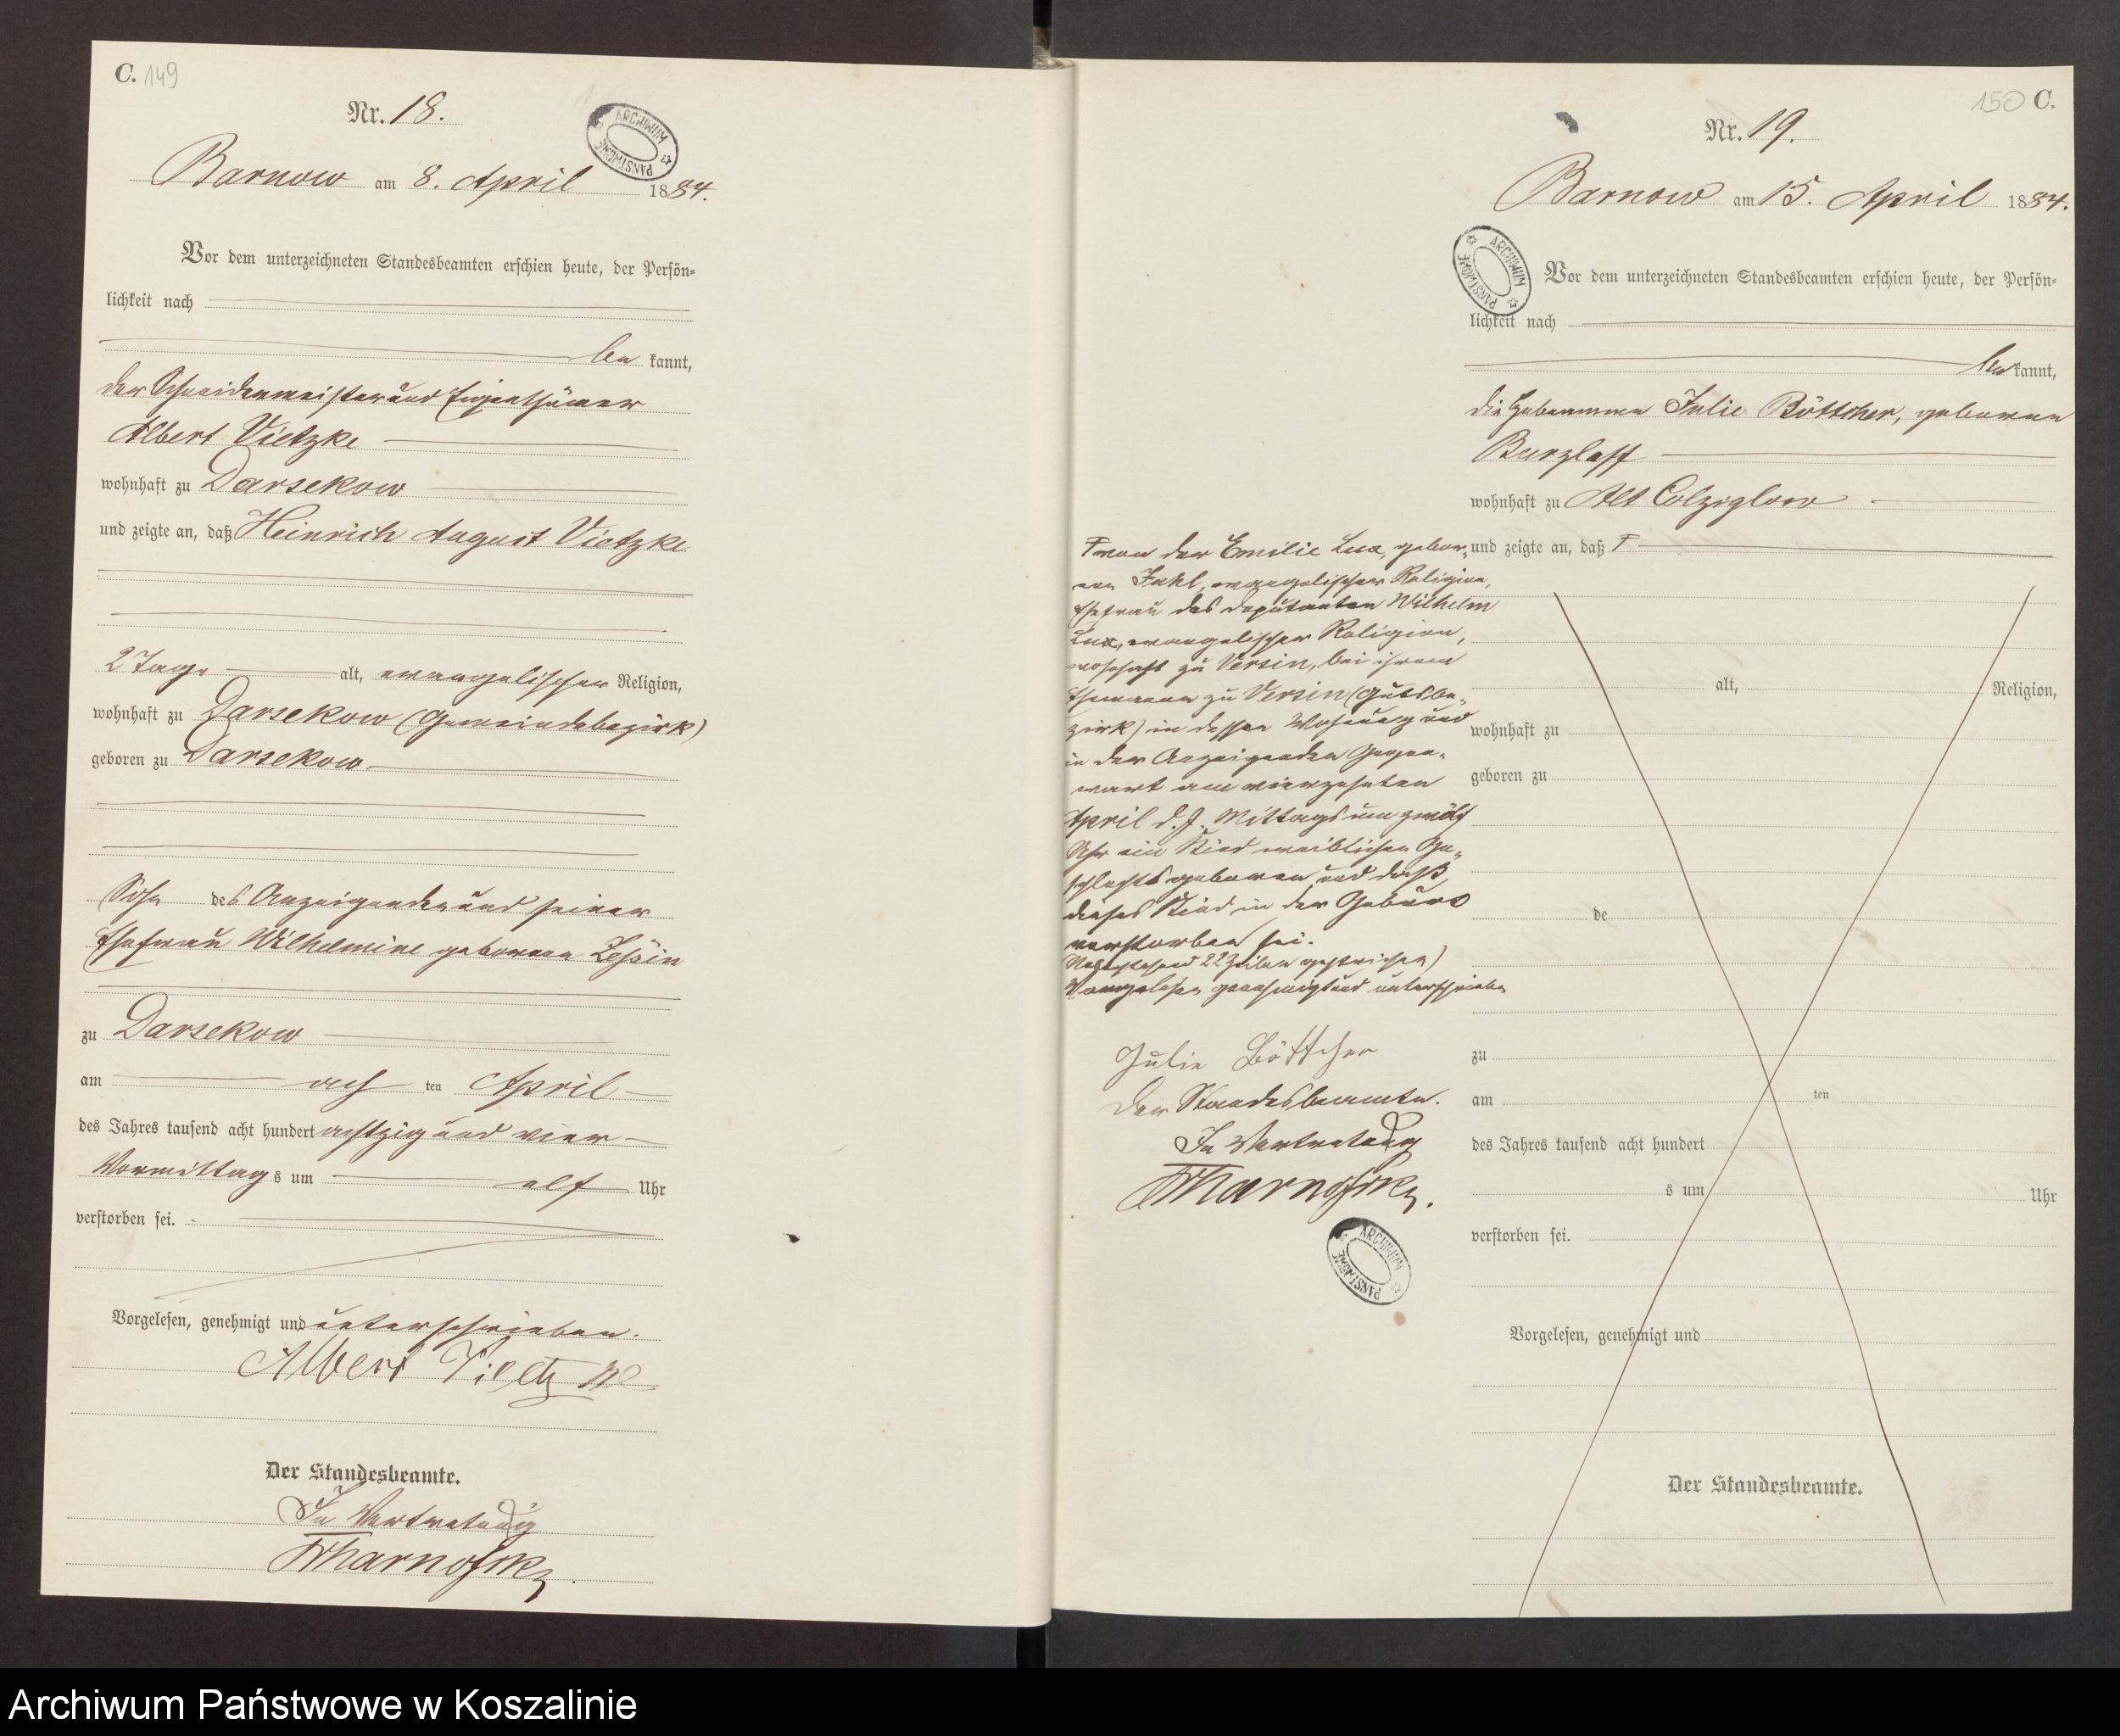 C. 149
Nr. 18.
ARCHIWUM PAŃSTWOWE
Barnow am 8. April 1884.
Vor dem unterzeichneten Standesbeamten erschien heute, der Persön-
lichkeit nach
be kannt,
der Schneidermeister und Eigenthümer
Albert Vietzke
wohnhaft zu Darsekow
und zeigte an, daß Heinrich August Vietzke
2 Tage alt, evangelischer Religion,
wohnhaft zu Darsekow (Gemeindebezirk)
geboren zu Darsekow
Sohn des Anzeigenden und seiner
Ehefrau Wilhelmine geborenen
zu Darsekow
am ach ten April
des Jahres tausend acht hundert achtzig und vier
Vormittag s um elf Uhr
verstorben sei.
Vorgelesen, genehmigt und unterschrieben.
Albert Vietzke
Der Standesbeamte.
In Vertretung
150 C.
Nr. 19.
Barnow am 15. April 1884.
ARCHIWUM PAŃSTWOWE
Vor dem unterzeichneten Standesbeamten erschien heute, der Persön-
lichkeit nach
be kannt,
die Hebeamme Julie Böttcher, geborene
Burzlaff
wohnhaft zu Alt Colziglow
und zeigte an, daß F
F von der Emilie Lux, gebor-
nen Fahl, evangelischer Religion,
Ehefrau des Deputanten Wilhelm
Lux, evangelischer Religion,
wohnhaft zu Versin, bei ihrem
Ehemanne zu Versin (Gutsbe-
zirk) in dessen Wohnung und
in der Anzeigenden Gegen-
wart am vierzehnten
April d. J. Mittags um zwölf
Uhr ein Kind weiblichen Ge-
schlechts geboren und daß
dieses Kind in der Geburt
verstorben sei.
22 Zeilen gestrichen)
Vorgelesen genehmigt und unterschrieben
Julie Böttcher
Der Standesbeamte.
In Vertretung
ARCHIWUM PAŃSTWOWE
alt, Religion,
wohnhaft zu
geboren zu
de
zu
am ten
des Jahres tausend acht hundert
s um Uhr
verstorben sei.
Vorgelesen, genehmigt und
Der Standesbeamte.
Archiwum Państwowe w Koszalinie